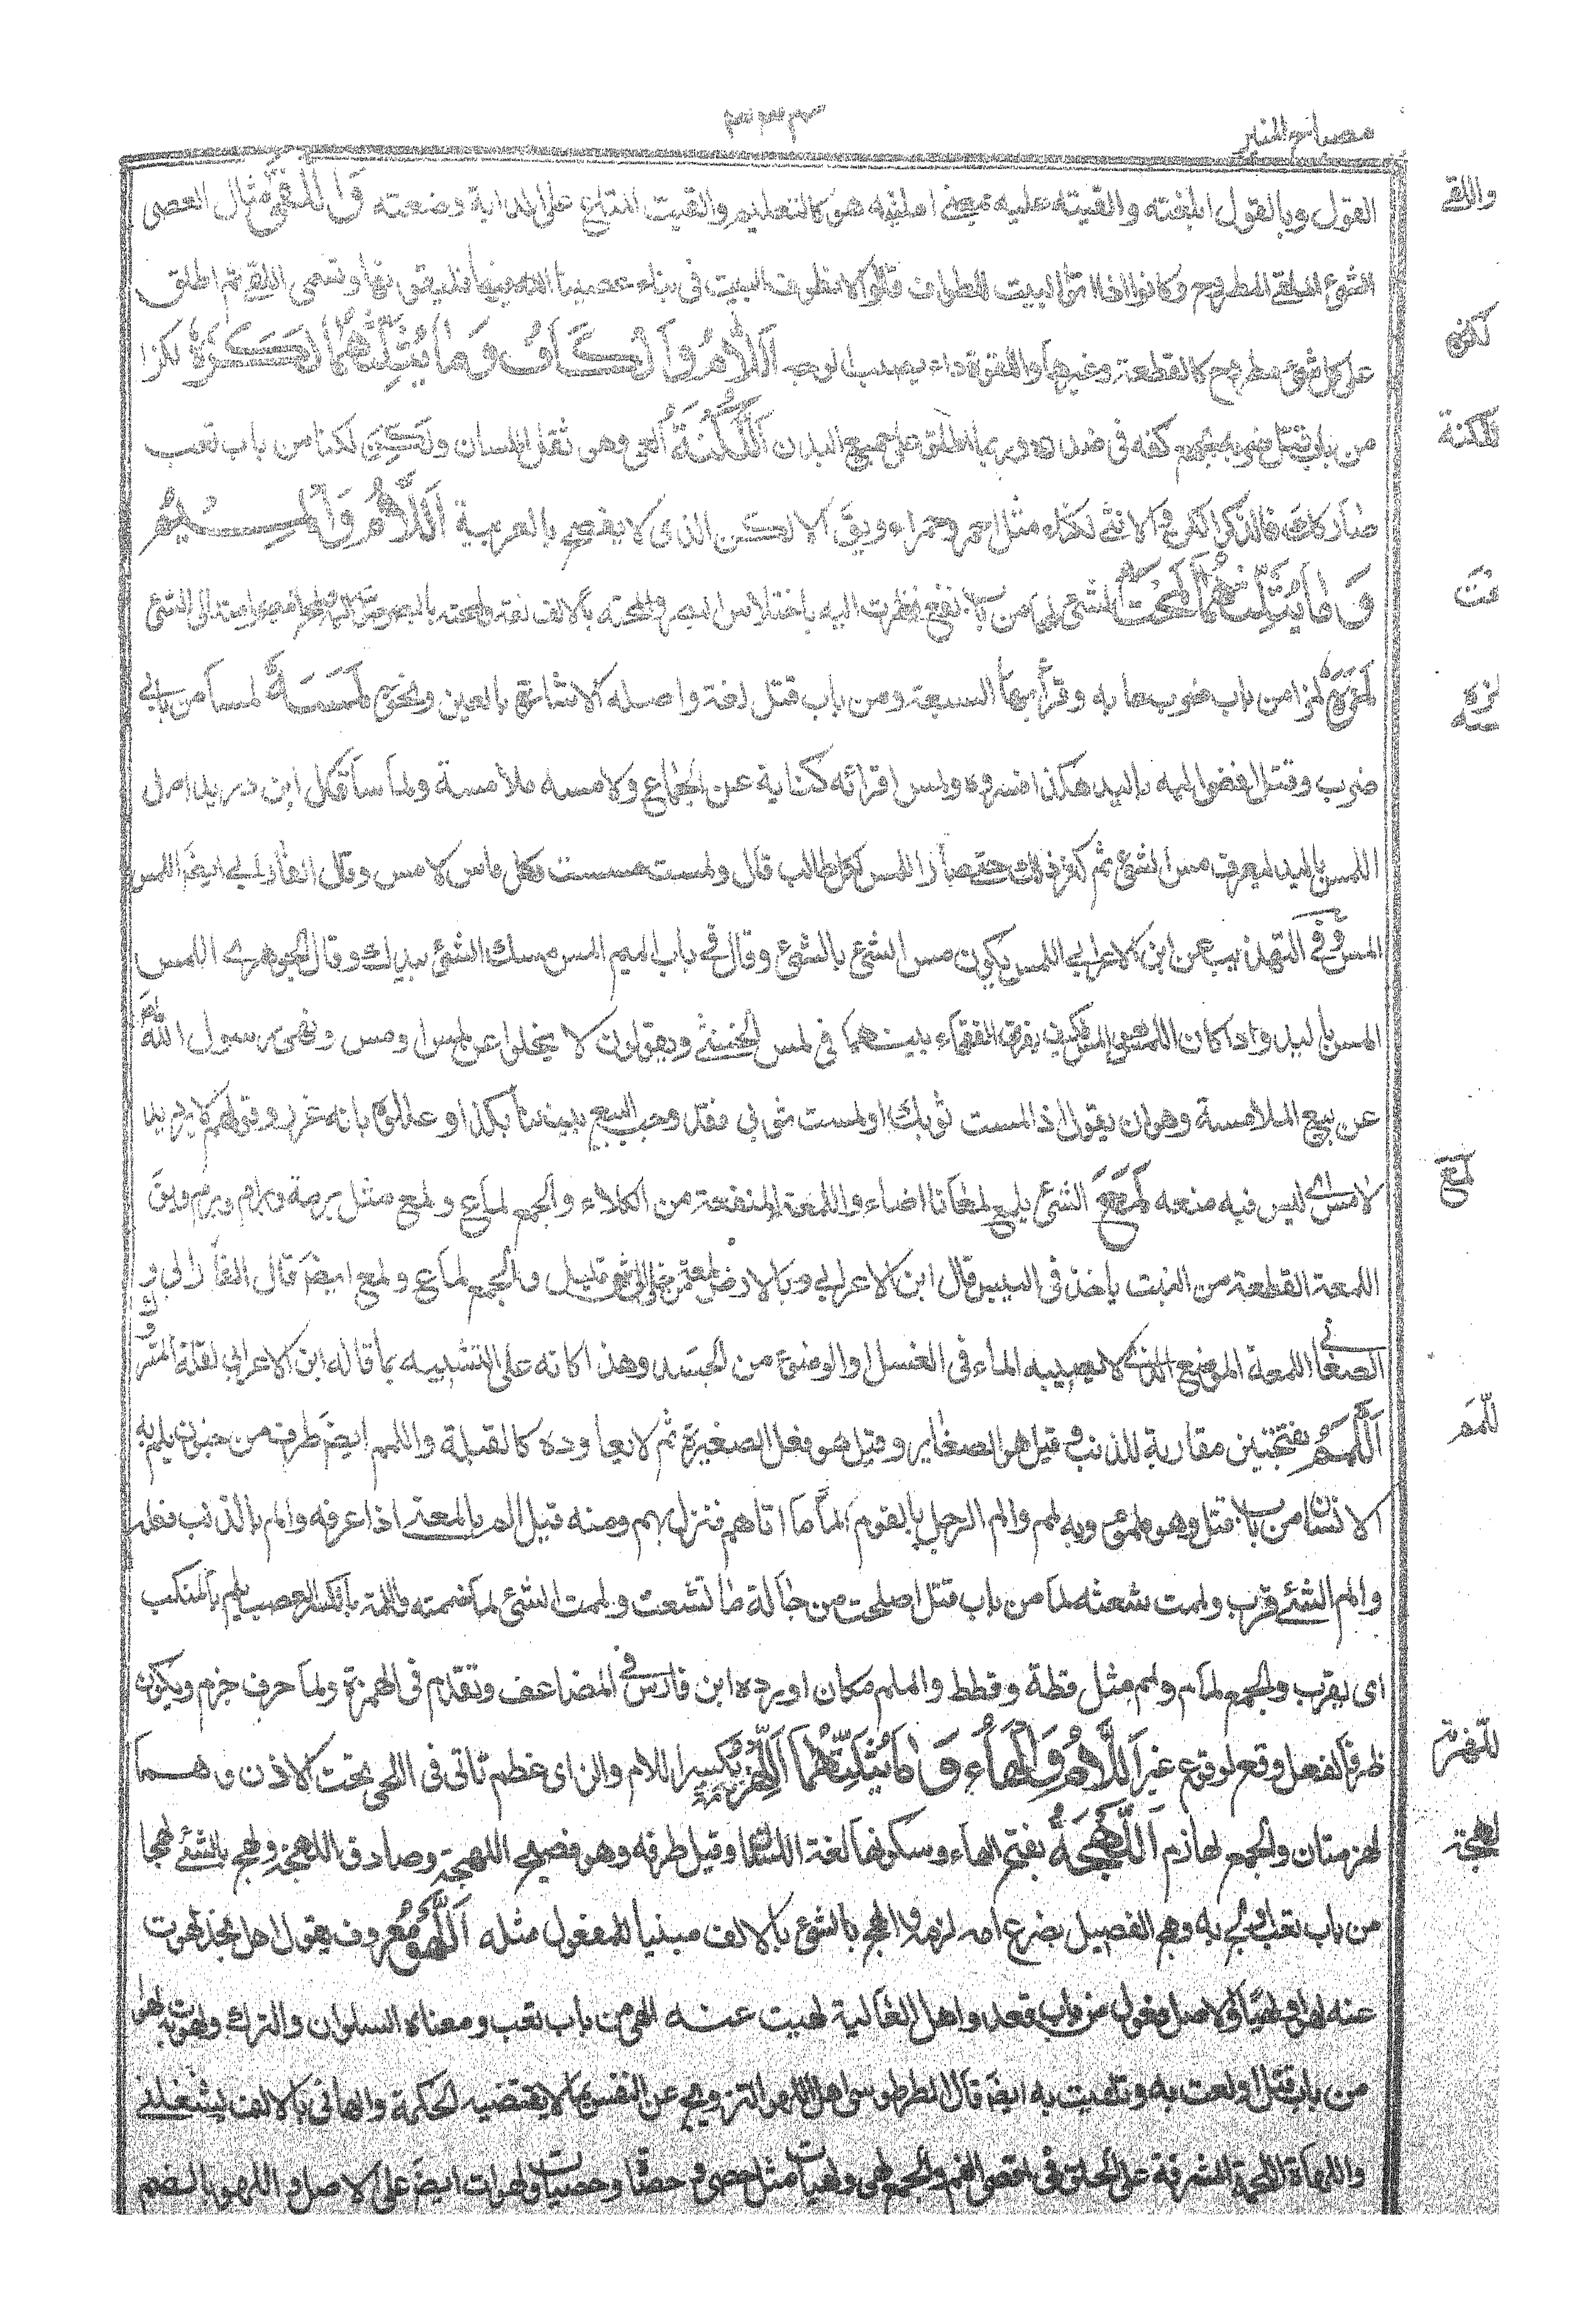 مصباح المنير
واللقى
القول وبالقول ابلغته والقيته عليه بمعنى امليته وهو كالتعليم والقيت المتاع على الدابة وضعته وَاللَّقَى مثال العصى
الشئ الملقى المطروح وكانوا اذا اتوا البيت للطواف قالوا لا نطوف البيت فى ثياب عصينا الله فيها فليلقونها وتسمى اللقى ثم اطلق
لكز
على كل شئ مطروح كاللقطة وغيرها واللقوة داء يصيب الوجه اَللَّامُ وَالْكَافُ وَمَا يُثَلِّثُهُمَا لَكَزَهُ لكزا
اللكنة
من باب قتل ضربه بجمع كفه فى صدره وربما اطلق على جميع البدن اَللُّكْنَةُ العى وهو ثقل اللسان ولكن لكنا من باب تعب
صار كذلك فالذكر الكن والانثى لكناء مثل احمر وحمراء ويق الالكن الذى لا يفصح بالعربية اَللَّامُ وَالْمِيمُ
وَمَا يُثَلِّثُهُمَا لَمَحْتُ الشئ لمحا من باب نفع نظرت اليه باختلاس البصر والمحته بالالف لغة ولمحته بالبصر صوبته اليه ولمح البصر امتد الى الشئ
لمزه
لمسه
لَمَزَهُ لمزا من باب ضرب عابه وقرأ بها السبعة ومن باب قتل لغة واصله الاشارة بالعين ونحوها لَمَسَهُ لمسا من بابى
ضرب وقتل افضى اليه باليد هكذا فسروه ولمس امراته كناية عن الجماع ولامسه ملامسة ولماسا قال ابن دريد اصل
اللمس باليد ليعرف مس الشئ ثم كثر ذلك حتى صار اللمس لكل طالب قال ولمست مسست وكل ماس لامس وقال الفارابى ايضا اللمس
المس وفى التهذيب عن ابن الاعرابى اللمس يكون مس الشئ بالشئ وقال فى باب الميم المس مسك الشئ بيدك وقال الجوهرى اللمس
المس باليد واذا كان اللمس هو المس فكيف يفرق الفقهاء بينهما فى لمس الخنثى ويقولون لا يخلوا عن لمس او مس ونهى رسول الله
عن بيع الملامسة وهو ان يقول اذا لمست ثوبك او لمست ثوبى فقد وجب البيع بيننا بكذا وعللوه بانه غرر وقولهم لا يرد يد
لمع
لامس اى ليس فيه منعة لَمَعَ الشئ يلمع لمعانا اضاء واللمعة المنفعة من الكلاء والجمع لماع ولمع مثل برمة وبرام وبرم ويق
اللمعة القطعة من النبت ياخذ فى اليبس قال ابن الاعرابى وبالارض لمعة من خلى اى شئ قليل والجمع لماع ولمع ايضا قال الفارابى و
الصغانى اللمعة الموضع الذى لا يصيبه الماء فى الغسل او الوضوء من الجسد وهذا كانه على التشبيه بما قاله ابن الاعرابى لقلة المتر
اللمم
اَللَّمَمُ بفتحتين مقاربة للذنب وقيل هو الصغاير وقيل هو فعل الصغيرة ثم لا يعاوده كالقبلة واللمم ايضا طرف من جنون يلم به
الانسان من باب قتل وهو ملموم وبه لمم والم الرجل بالقوم الماما اتاهم فنزل بهم ومنه قيل الم بالمعنى اذا عرفه والم بالذنب فعله
والم الشئ قرب ولممت شعثه لما من باب قتل اصلحت من حاله ما تشعث ولممت الشئ لما ضممته واللمة بالكسر الشعر يلم بالمنكب
اى يقرب والجمع لمام ولمم مثل قطة وقطط والملم مكان اورده ابن فارس فى المضاعف وتقدم فى الهمزة ولما حرف جزم ويكون
اللهزمة
ظرفا لفعل وقع لوقوع غيره اَللَّامُ وَالْهَاءُ وَمَا يُثَلِّثُهُمَا اَللِّهْزِمَةُ بكسر اللام والزاى عظم ناتى فى اللحى تحت الاذن وهما
لهجة
لهزمتان والجمع لهازم اَللَّهْجَةُ بفتح الهاء وسكونها لغة اللسان وقيل طرفه وهو فصيح اللهجة وصادق اللهجة ولهج بالشئ لهجا
من باب تعب اولع به ولهج الفصيل بضرع امه لزمه والهج بالشئ بالالف مبنيا للمفعول مثله اَللَّهْوُ معروف يقول اهل نجد لهوت
عنه الهو لهيا والاصل فعول من باب قعد واهل العالية لهيت عنه الهى من باب تعب ومعناه السلوان والترك ولهوت به لهوا
من باب قتل اولعت به وتلهيت به ايضا قال الطرطوسى اصل اللهو الترويح عن النفس بما لا يقتضيه الحكمة والهانى بالالف يشغلنى
واللهاة اللحمة المشرفة على الحلق فى اقصى الفم والجمع لهى ولهيات مثل حصى وحصاة وحصيات ولهوات ايضا على الاصل واللهوة بالضم